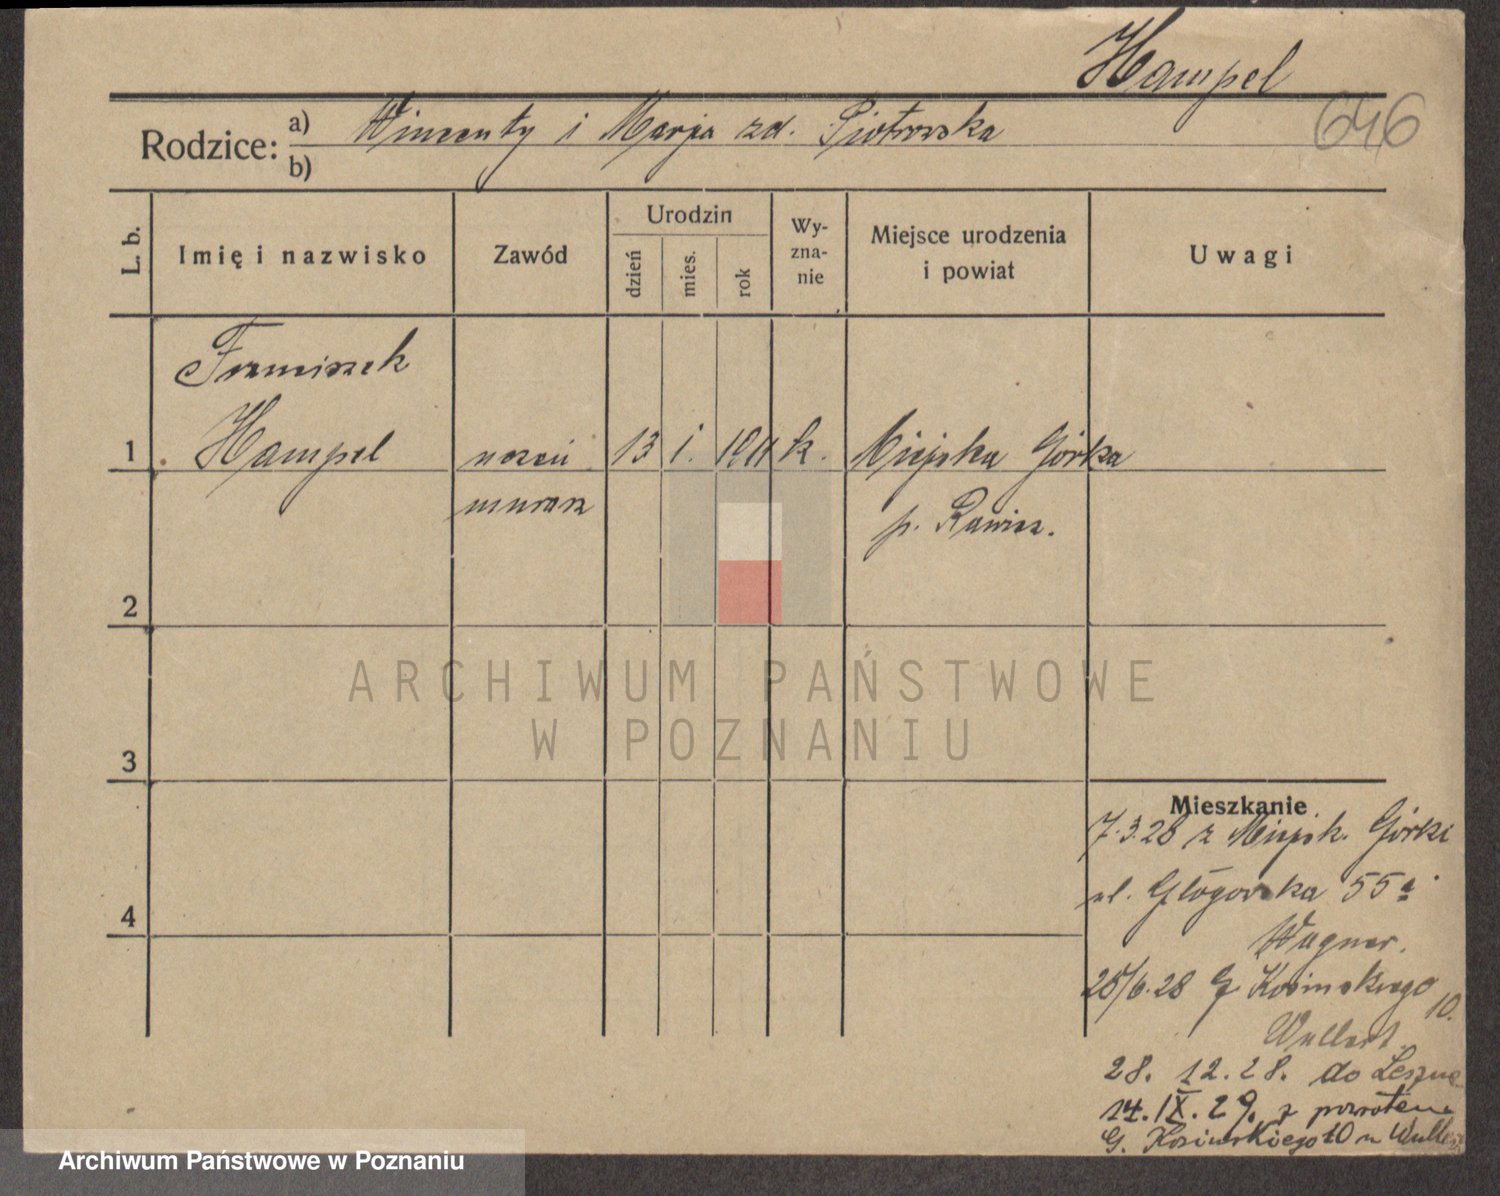 Hampel
646
Rodzice: a) Wincenty i Marja zd. Piotrowska
b)
L. b.
Imię i nazwisko
Zawód
Urodzin
dzień
mies.
rok
Wy-
zna-
nie
Miejsce urodzenia
i powiat
Uwagi
Franciszek
1 Hampel uczeń 13 i. 1911 k. Miejska Górka
murarz p. Rawicz.
2
ARCHIWUM PAŃSTWOWE
W POZNANIU
3
Mieszkanie
7.3.28 z Miejsk. Górki
4
ul. Głogowska 55a
Wagner.
28/6.28 G Kosinskiego 10.
28. 12. 28. do Leszna
14. IX. 29. z powrotem
G. Kosinskiego 10 u
Archiwum Państwowe w Poznaniu